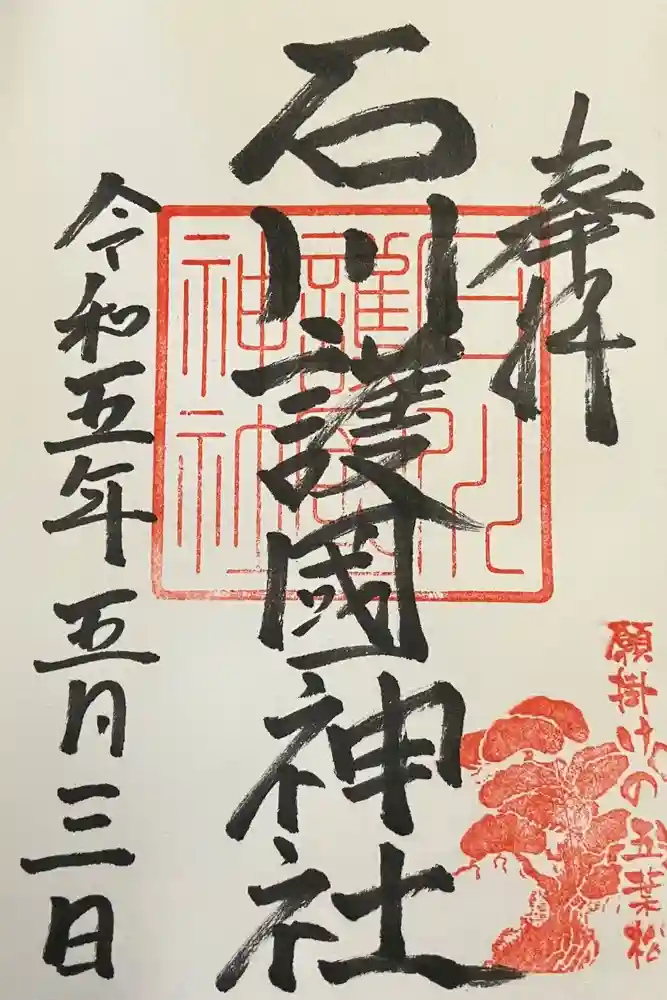 奉拝
石川護國神社
石川
護國
神社
令和五年五月三日
願掛けの五葉松